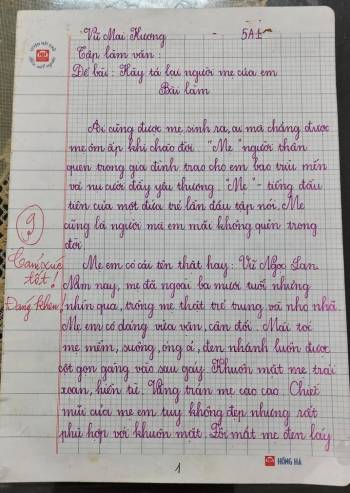 Vũ Mai Hương - 5A1
Tập làm văn:
Đề bài: Hãy tả lại người mẹ của em
Bài làm
Ai cũng được mẹ sinh ra, ai mà chẳng được
mẹ ôm ấp khi chào đời. "Mẹ" người thân
quen trong gia đình trao cho em bao trìu mến
và nụ cười đầy yêu thương. "Mẹ" - tiếng đầu
tiên của một đứa trẻ lần đầu tập nói. Mẹ
cũng là người mà em mãi không quên trong
đời.
9
Cảm xúc
tốt!
Đáng khen!
Mẹ em có cái tên thật hay: Vũ Ngọc Lan.
Năm nay, mẹ đã ngoài ba mươi tuổi nhưng
nhìn qua, trông mẹ thật trẻ trung và nhỏ nhã.
Mẹ em có dáng vừa vặn, cân đối. Mái tóc
mẹ mềm, suông, óng ả, đen nhánh luôn được
cột gọn gàng vào sau gáy. Khuôn mặt mẹ trái
xoan, hiền từ. Vầng trán mẹ cao cao. Chiếc
mũi của mẹ em tuy không đẹp nhưng rất
phù hợp với khuôn mặt. Đôi mắt mẹ đen láy
1
HỒNG HÀ